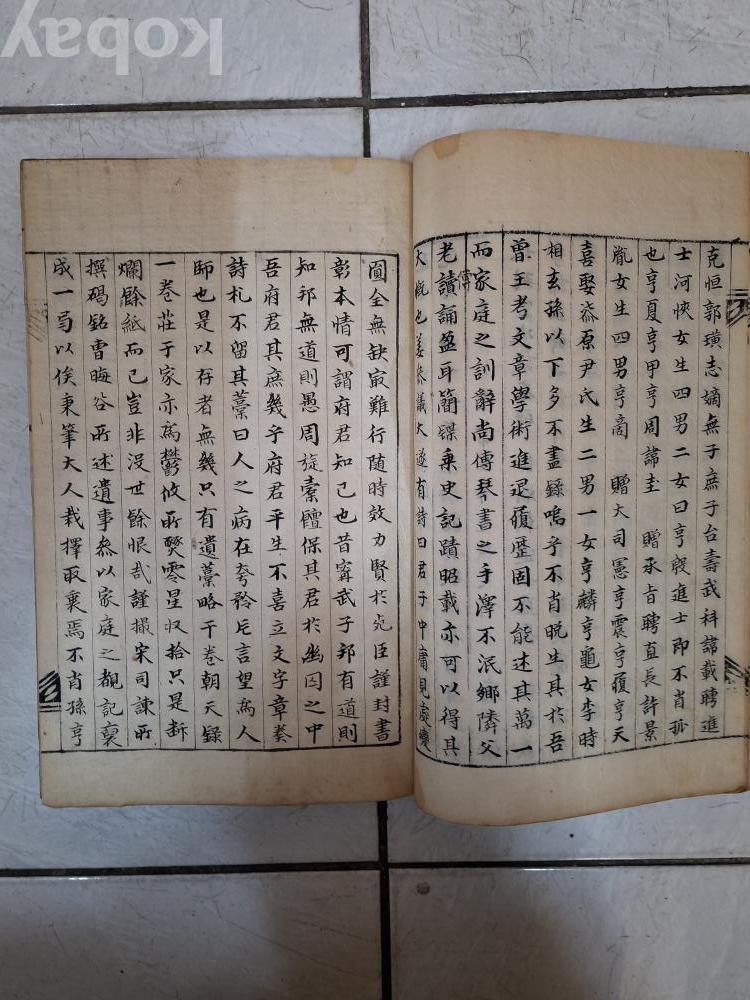 Kobay
克恒郭璜志嫡無子庶子台壽武科諱載聘進
士河恢女生四男二女曰亨　進士卽不肖孤
也亨夏亨甲亨周諱圭　贈承旨聘直長許景
胤女生四男亨啇　贈大司憲亨震亨復亨天
喜娶漆原尹氏生二男一女亨麟亨龜女李時
相玄孫以下多不盡錄嗚乎不肖晩生其於吾
曽王考文章學術進退履歷固不能述其萬一
而家庭之訓辭尚傳琴書之手澤不泯鄉隣父
老讀誦盈耳簡牒乗史記蹟昭載亦可以得其
大槪也姜叅議大遂有詩曰君子中庸見處變
圓全無缺㝡難行随時效力賢於死臣謹封書
彰本情可謂府君知己也昔甯武子邦有道則
知邦無道則愚周旋槖饘保其君於幽囚之中
吾府君其庶幾乎府君平生不喜立文字章奏
詩札不留其藁曰人之病在夸矜片言望爲人
師也是以存者無幾只有遺藁略干卷朝天錄
一卷莊于家亦爲鬱攸所㷊零星収拾只是斷
爛餘紙而已豈非没世餘恨㦲謹撮宋司諫所
撰碣銘曺晦谷所述遺事叅以家庭之覩記裒
成一局以俟秉筆大人裁擇取裏焉不肖孫亨